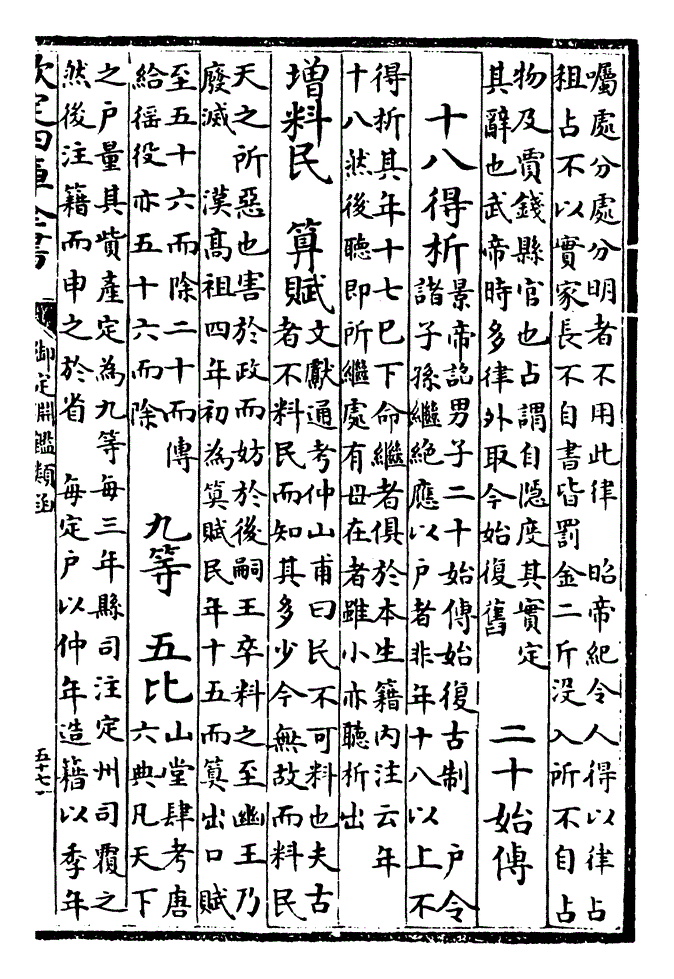 囑處分處分明者不用此律 昭帝紀令人得以律占
租占不以實家長不自書皆罰金二斤没入所不自占
物及賈錢縣官也占謂自隠度其實定
其辭也武帝時多律外取今始復舊
二十始傅
十八得析
景帝詔男子二十始傅始復古制 户令
諸子孫繼絶應以户者非年十八以上不
得析其年十七巳下命繼者俱於本生籍内注云年
十八然後聽即所繼處有母在者雖小亦聽析出
增料民 算賦
文獻通考仲山甫曰民不可料也夫古
者不料民而知其多少今無故而料民
天之所惡也害於政而妨於後嗣王卒料之至幽王乃
廢滅 漢髙祖四年初為筭賦民年十五而筭出口賦
至五十六而除二十而傅
給徭役亦五十六而除
九等 五比
山堂肆考唐
六典凡天下
之户量其貲產定為九等每三年縣司注定州司覆之
然後注籍而申之於省 每定户以仲年造籍以季年
欽定四庫全書
御定淵鑑類函
五十七